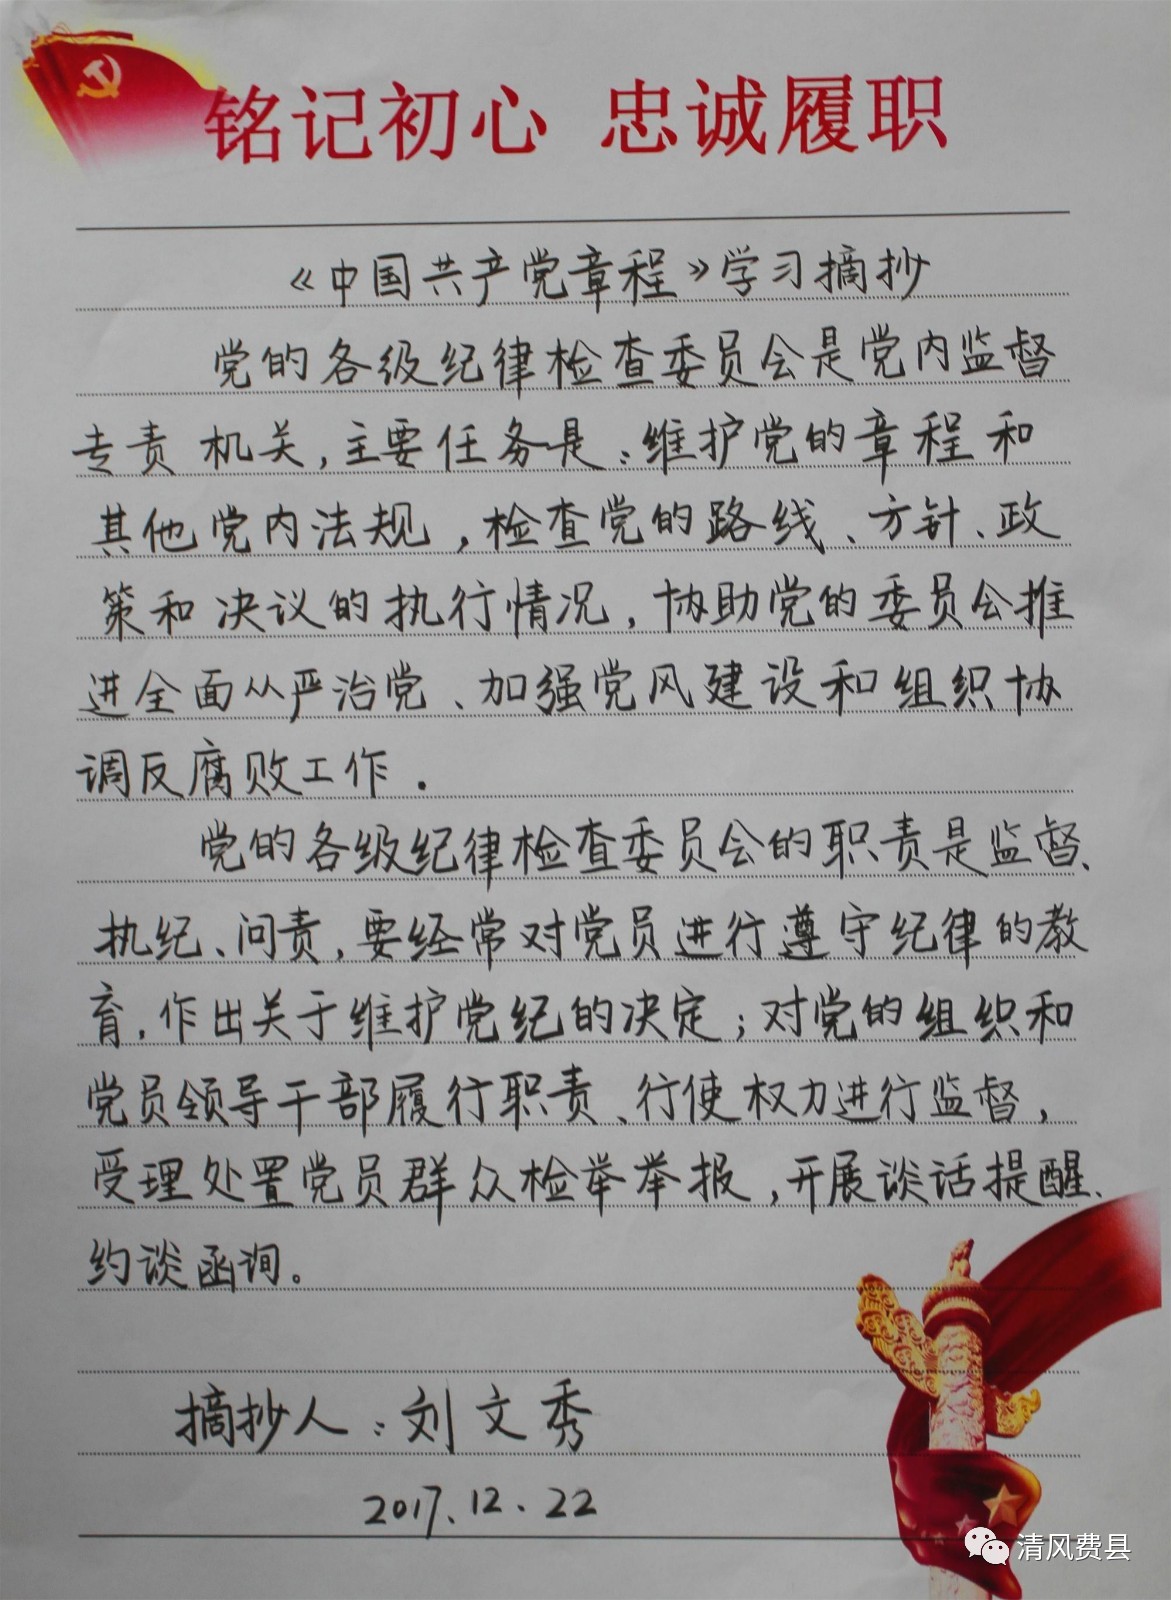 铭记初心 忠诚履职
《中国共产党章程》学习摘抄
党的各级纪律检查委员会是党内监督
专责机关,主要任务是:维护党的章程和
其他党内法规,检查党的路线、方针、政
策和决议的执行情况,协助党的委员会推
进全面从严治党、加强党风建设和组织协
调反腐败工作.
党的各级纪律检查委员会的职责是监督、
执纪、问责,要经常对党员进行遵守纪律的教
育,作出关于维护党纪的决定;对党的组织和
党员领导干部履行职责、行使权力进行监督,
受理处置党员群众检举举报,开展谈话提醒、
约谈函询。
摘抄人:刘文秀
2017.12.22
清风费县